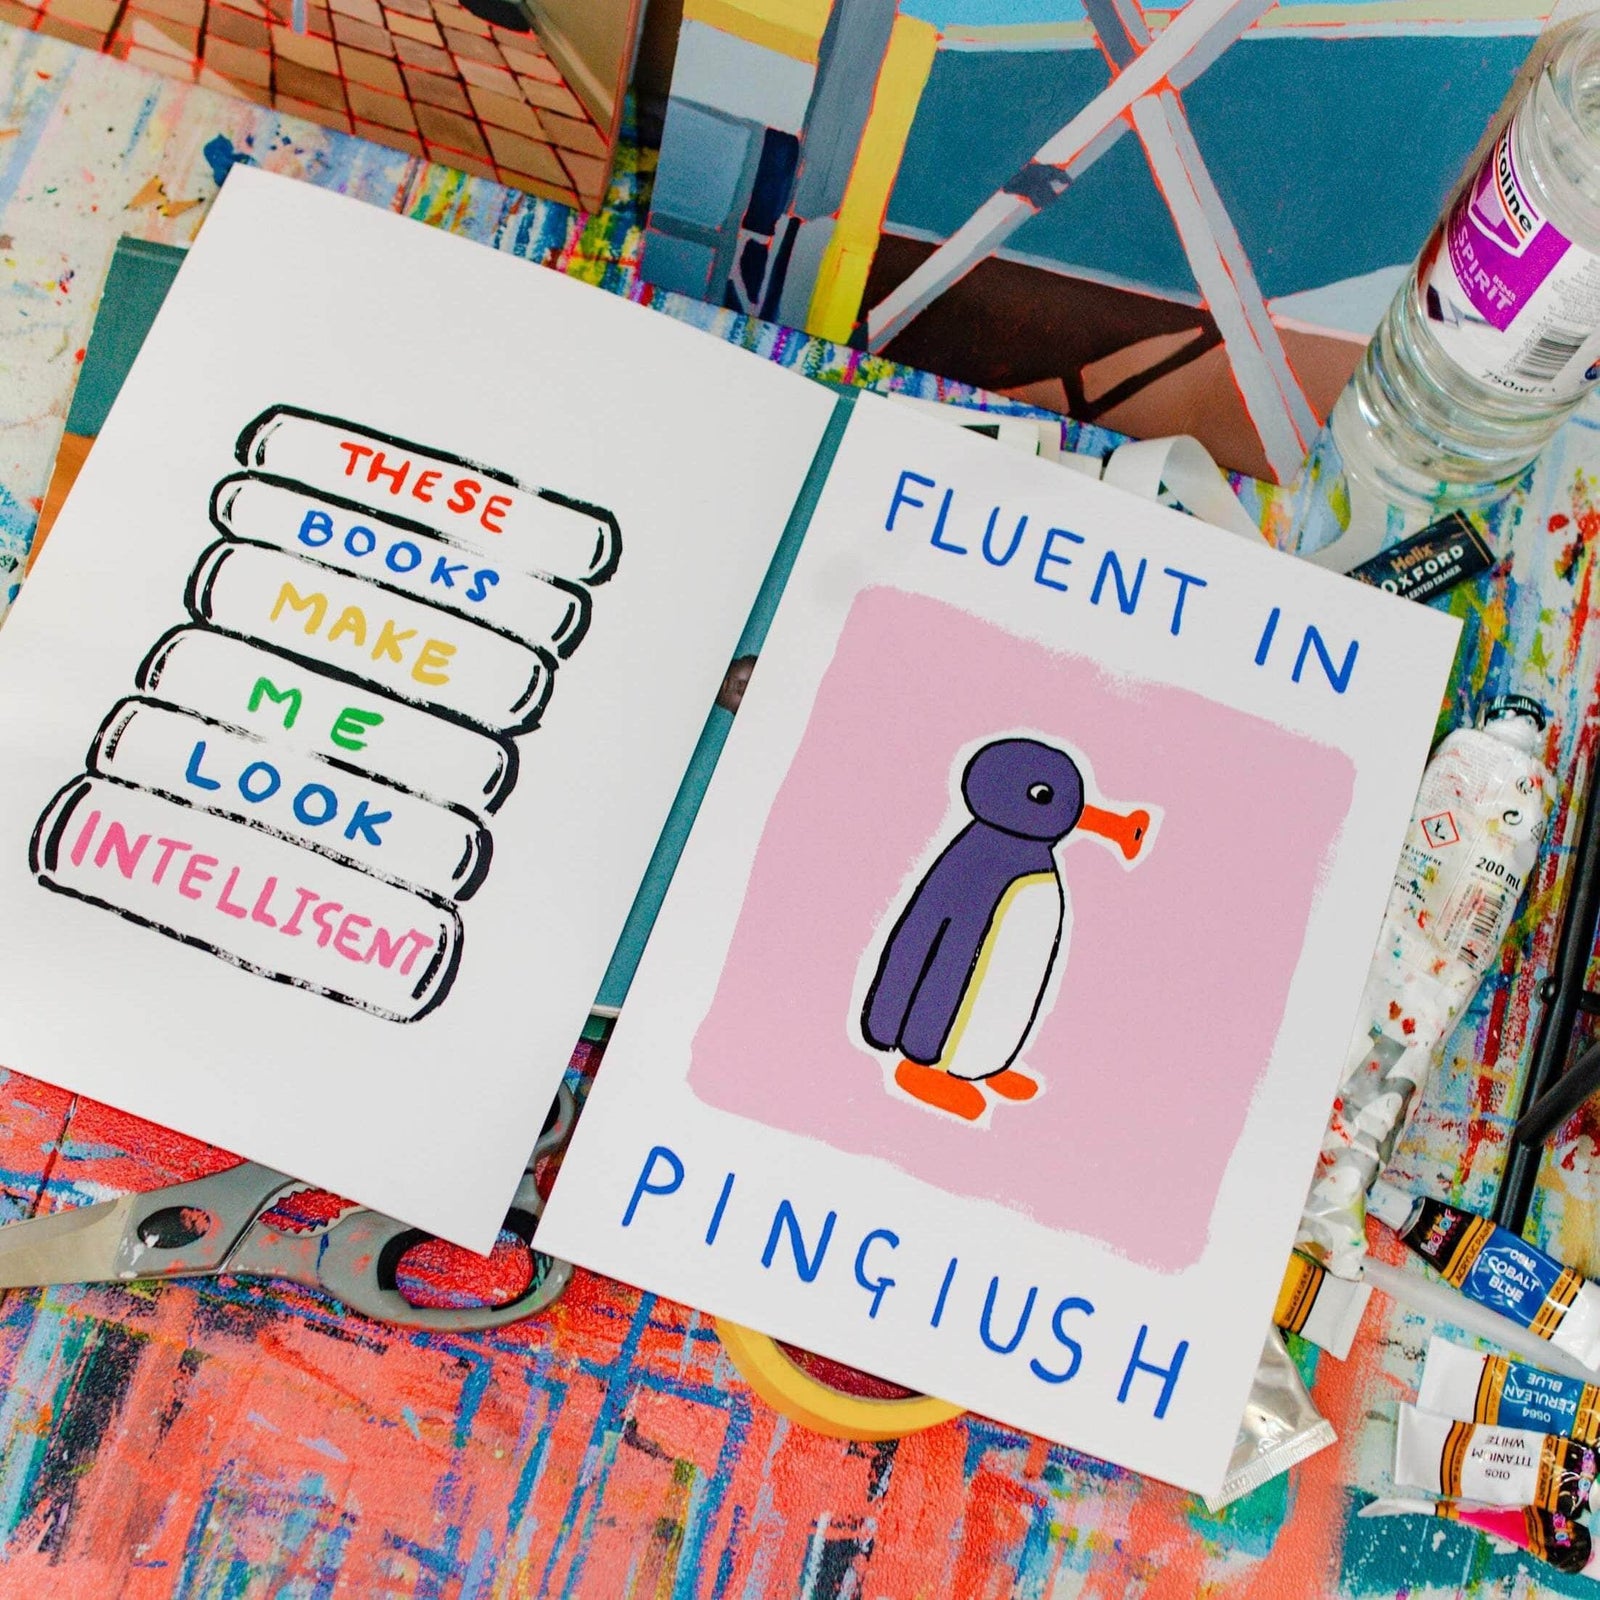 THESE
BOOKS
MAKE
ME
LOOK
INTELLIGENT
FLUENT IN
PINGIUSH
SPIRIT
750ml
Helix
OXFORD
200 ml
COBALT
BLUE
CERULEAN
BLUE
0564
TITANIUM
WHITE
0105